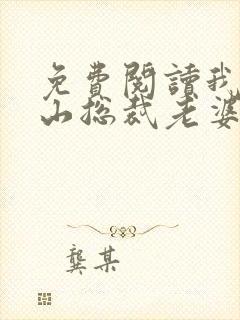 免費閱讀我
山总裁老婆
龔某